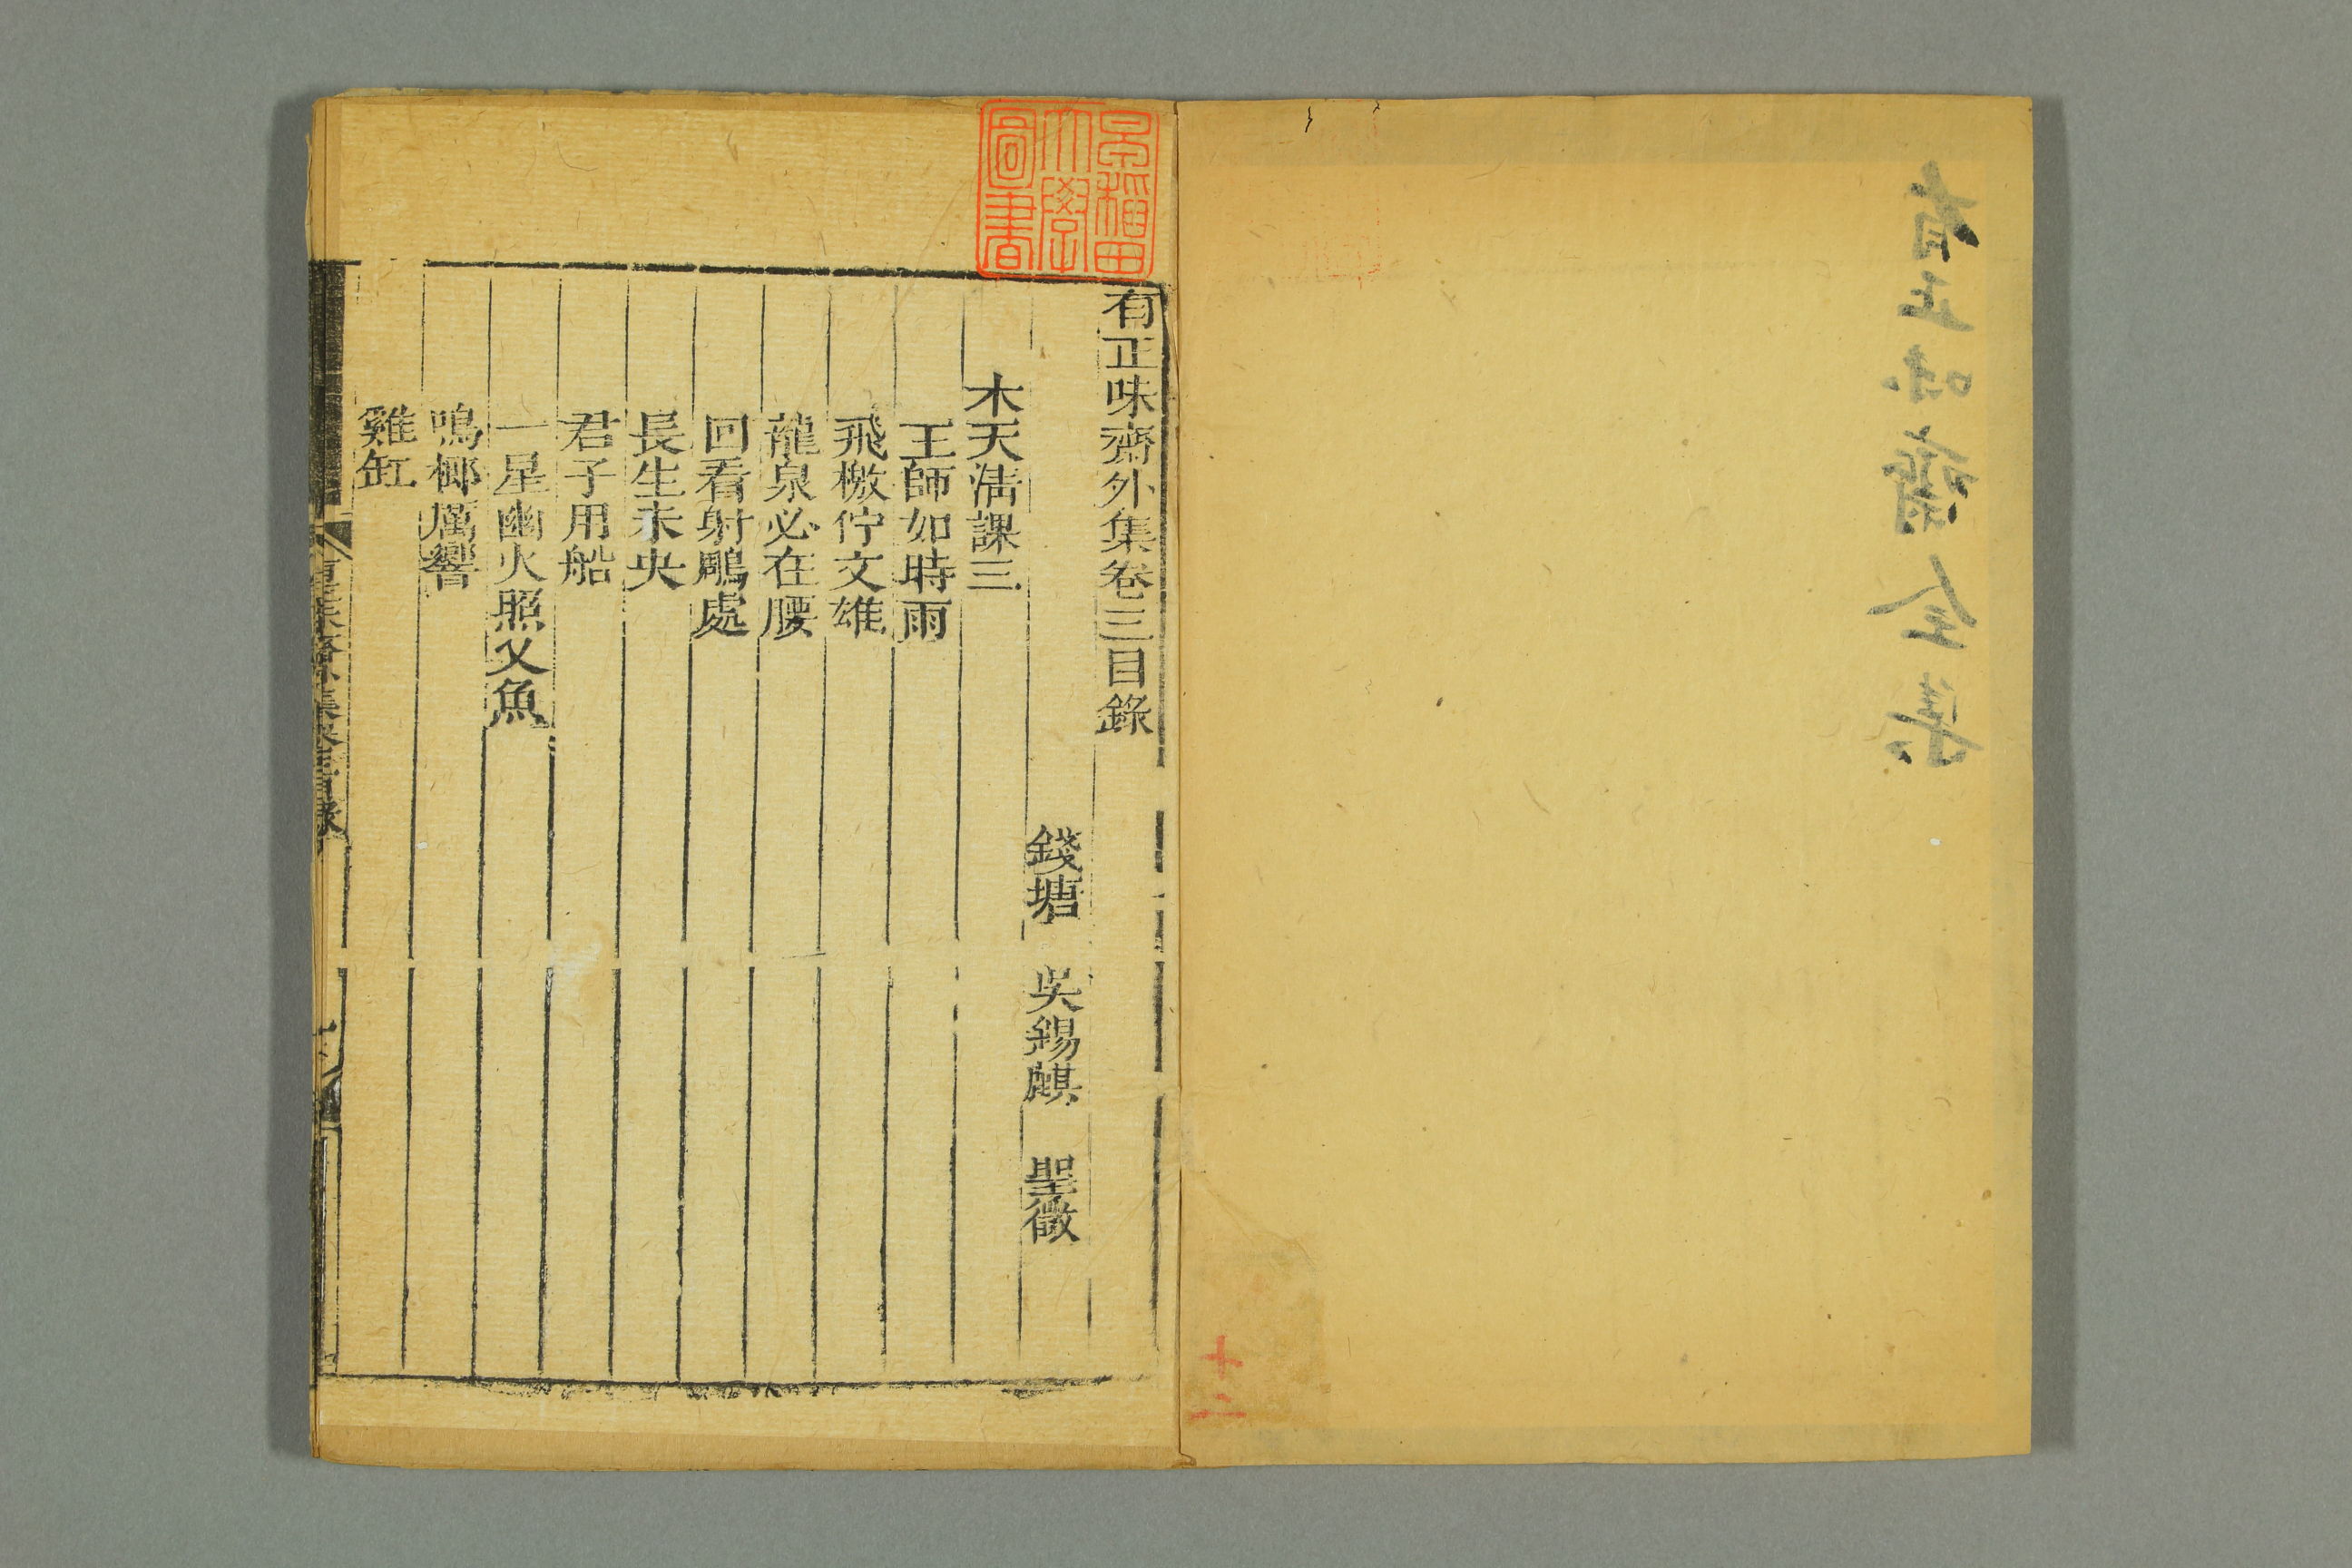 有正味齋全集
十二
早稲田
大學
圖書
有正味齋外集卷三目錄
錢塘 吳錫麒 聖徵
木天清課三
王師如時雨
飛檄佇文雄
龍泉必在腰
回看射鵰處
長生未央
君子用船
一星幽火照叉魚
鳴榔厲響
雞缸